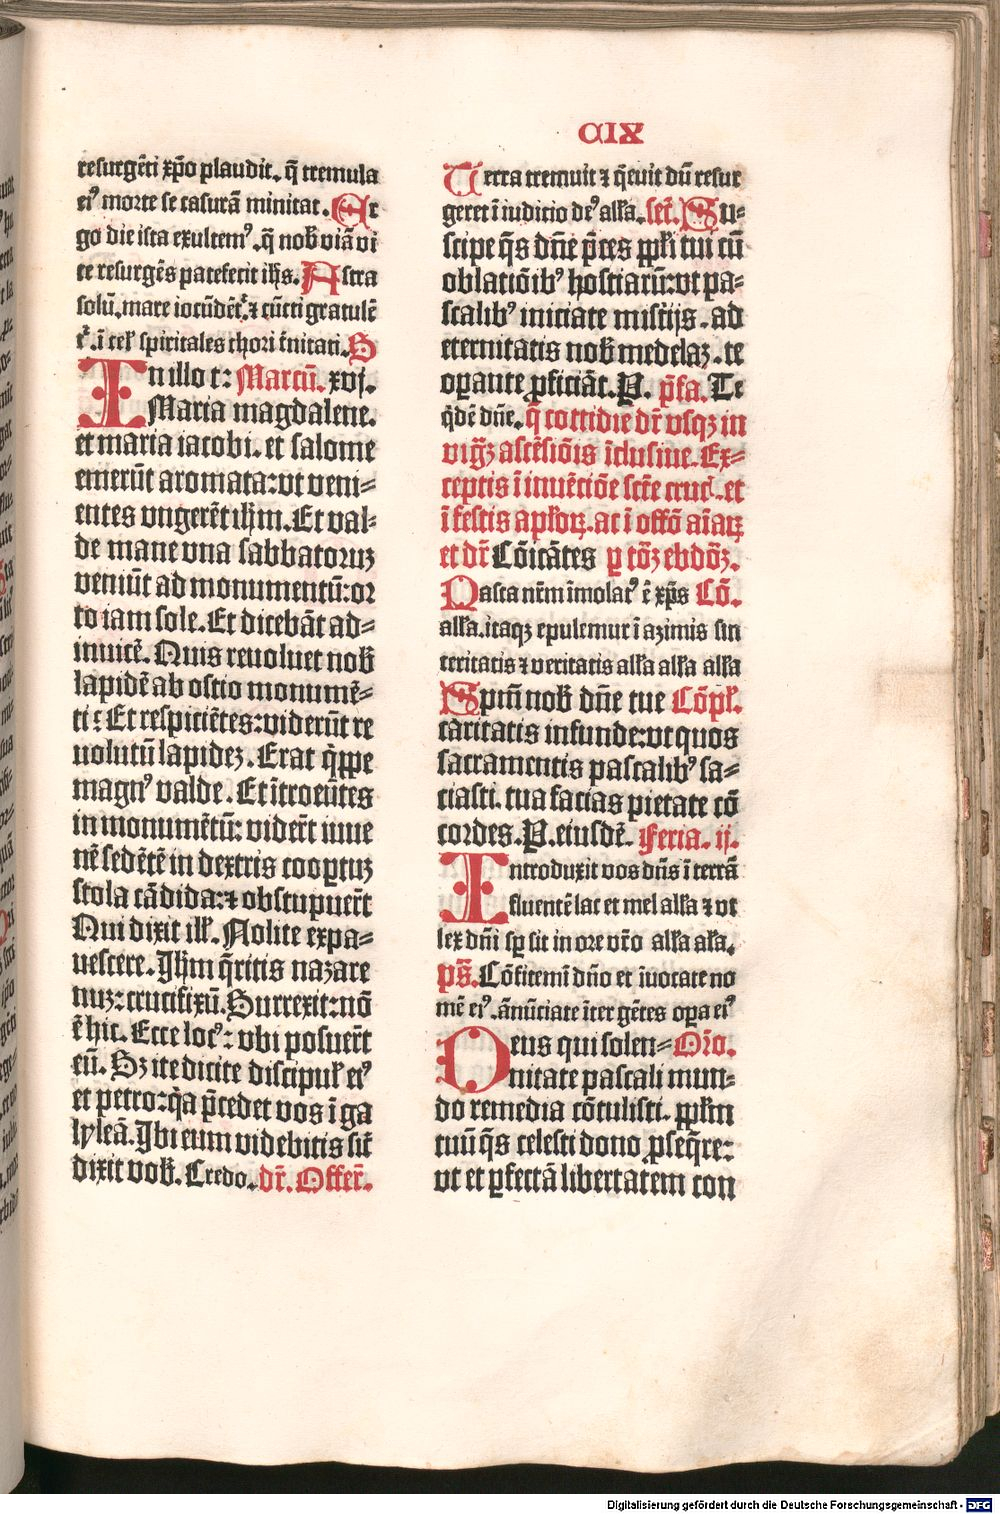 CIX
resurgēti xp̄o plaudit. q̄ tremula
eiꝰ morte se casurā minitat. Er
go die ista exultemꝰ. q̄ nob̄ viā vi
te resurgēs patefecit ih̄s. Astra
solū. mare iocūdēt᷑. ⁊ cūcti gratulē
t᷑. ī cel̄ spiritales chori t̄nitati. S
In illo t: Marcū. xvj.
Maria magdalene.
et maria iacobi. et salome
emerūt aromata: vt veni⸗
entes vngerēt ih̄m. Et val⸗
de mane vna sabbatoruꝫ
veniūt ad monumentū: or
to iam sole. Et dicebāt ad⸗
inuicē. Quis reuoluet nob̄
lapidē ab ostio monumē⸗
ti: Et respiciētes: viderūt re
uolutū lapideꝫ. Erat q̄ppe
magnꝰ valde. Et ītroeūtes
in monumētū: viderūt iuue
nē sedētē in dextris cooptuꝫ
stola cādida: ⁊ obstupuer̄t
Qui dixit ill̄. Nolite expa⸗
uescere. Ih̄m q̄ritis nazare
nuꝫ: crucifixū. Surrexit: nō
ē hic. Ecce locꝰ: vbi posuer̄t
eū. Sꝫ ite dicite discipul̄ eiꝰ
et petro: q̄a p̄cedet vos ī ga
lyleā. Ibi eum videbitis sic̄
dixit vob̄. Credo. dr̄. Offer̄.
Terra tremuit ⁊ q̄euit dū resur
geret ī iudicio deꝰ all̄a. secr̄. Su⸗
scipe q̄s dn̄e p̄ces ppl̄i tui cū
oblatiōibꝰ hostiarū: vt pa⸗
scalibꝰ iniciate mister̄ijs. ad
eternitatis nob̄ medelaꝫ. te
oꝑante ꝓficiāt. P. p̄fa. Te
q̄dē dn̄e. q̄ cottidie dr̄ vsqꝫ in
vigl̄ꝫ ascēsiōis īclusiue. Ex⸗
ceptis ī inuētiōe scē̄ cruc̄. et
ī festis apl̄oꝝ. ac ī offō aīaꝝ
et dr̄ Cōicātes ꝑ tōꝫ ebdōꝫ.
Pasca nr̄m īmolatꝰ ē xp̄s Cō.
all̄a. itaqꝫ epulemur ī azimis sin
ceritatis ⁊ veritatis all̄a all̄a all̄a
Spm̄ nob̄ dn̄e tue Cōpl̄.
caritatis infunde: vt quos
sacramentis pascalibꝰ sa⸗
ciasti. tua facias pietate cō
cordes. P. eiusdē. Feria. ij.
Introduxit vos dn̄s ī terrā
fluentē lac et mel all̄a ⁊ vt
lex dn̄i sꝑ sit in ore vr̄o all̄a all̄a.
ps̄. Cōfitemī dn̄o et īuocate no
mē eiꝰ. ānūciate īter gētes oꝑa eiꝰ
Deus qui solen⸗ Oro.
nitate pascali mun⸗
do remedia cōtulisti. ppl̄m
tuū q̄s celesti dono ꝓseq̄re:
vt et ꝑfectā libertatem con
Digitalisierung gefördert durch die Deutsche Forschungsgemeinschaft - DFG